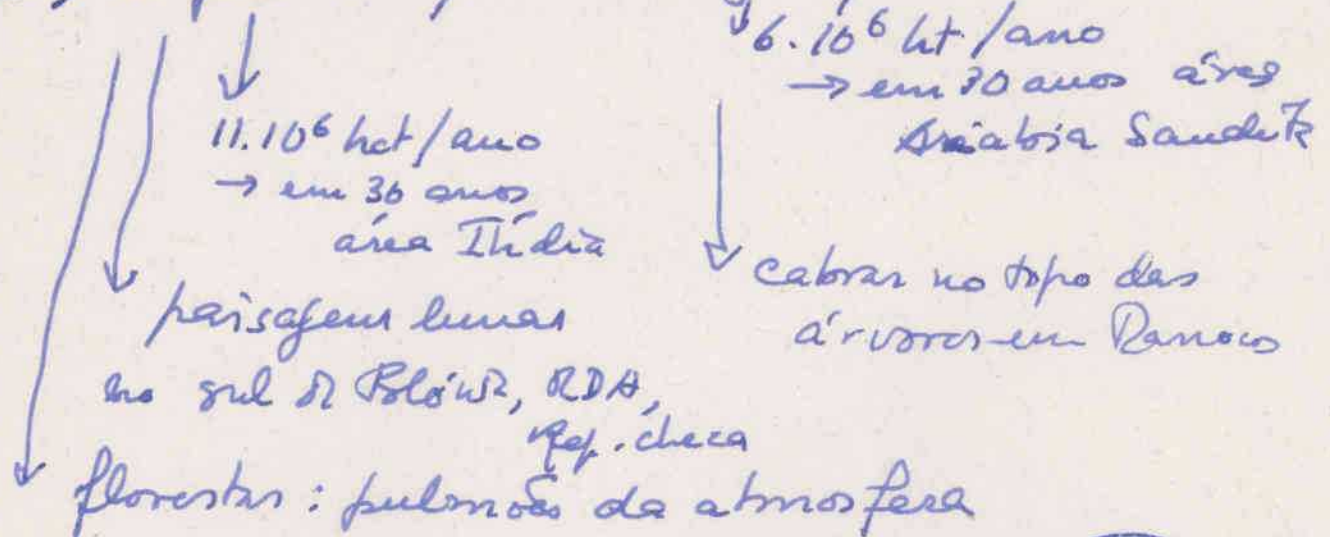 6.10⁶ ht./ano
→ em 30 anos área
Arábia Saudita
11.10⁶ hct/ano
→ em 30 anos
área Índia
cabras no topo das
árvores em Marrocos
paisagem lunar
no sul da Polónia, RDA,
Rep. checa
florestas : pulmões da atmosfera